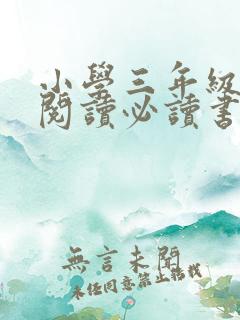 小學三年級
閱讀必讀書
無言未開
未任同意禁止轉載